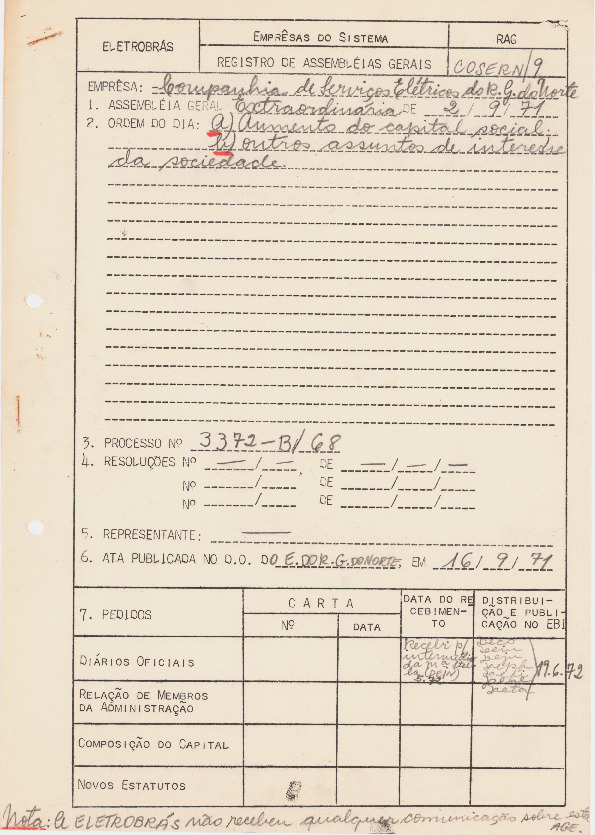 ELETROBRÁS
EMPRÊSAS DO SISTEMA
RAG
REGISTRO DE ASSEMBLÉIAS GERAIS
COSERN/9
EMPRÊSA: Companhia de Serviços Elétricos do R.G. do Norte
1. ASSEMBLÉIA GERAL Extraordinária DE 2/9/71
2. ORDEM DO DIA: a) Aumento do capital social.
b) outros assuntos de interesse
da sociedade.
3. PROCESSO Nº 3372-B/68
4. RESOLUÇÕES Nº — / — , DE — / — / —
Nº / DE / /
Nº / DE / /
5. REPRESENTANTE: —
6. ATA PUBLICADA NO D.O. DO E. DO R. G. DO NORTE, EM 16/9/71
7. PEDIDOS
CARTA
Nº
DATA
DATA DO RE
CEBIMEN-
TO
DISTRIBUI-
ÇÃO E PUBLI-
CAÇÃO NO EBI
DIÁRIOS OFICIAIS
Recebi p/
intermédio
da
19.6.72
RELAÇÃO DE MEMBROS
DA ADMINISTRAÇÃO
COMPOSIÇÃO DO CAPITAL
NOVOS ESTATUTOS
Nota: A ELETROBRÁS não recebeu qualquer comunicação sobre esta
AGE.